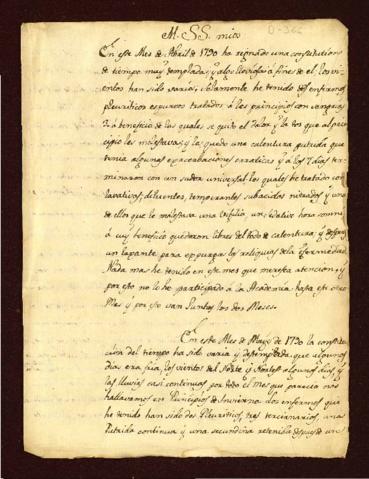 M. SS. mios
En este Mes de Abril de 1790 ha reynado una constitucion
de tiempo muy templada, y algo lluviosa á fines de el. los vi-
entos han sido varios, solamente he tenido dos enfermos
Pleuriticos espureos tratados á los principios con sangrias
á beneficio de los quales se quitó el dolor y la tos que al prin-
cipio les molestava, y la quedó una calentura
tenia algunas exacerbaciones erraticas y á los 7 dias ter-
minaron con un sudor universal los quales he tratado con
lavativas, diluentes, temperantes subacidos nitrados y uno
de ellos que le molestava una vigilia, un sedativo
á cuyo beneficio quedaron libres del todo de calentura y despues
un laxante para expurgar las reliquias de la enfermedad.
Nada mas he tenido en este mes que meresca atencion, y
por esto no lo he participado á la Academia hasta este otro
Mes y por esto van Juntos los dos Meses.
En este Mes de Mayo de 1790 la constitu-
cion del tiempo ha sido varia y destemplada, que algunos
dias era fria, los vientos del Norte y algunos dias, y
las lluvias casi continuas por todo el mes que parecia nos
hallavamos en Principios de Invierno. los enfermos que
he tenido han sido dos Pleuriticos, tres tercianarios, una
Putrida continua y una secundina retenida despues de un